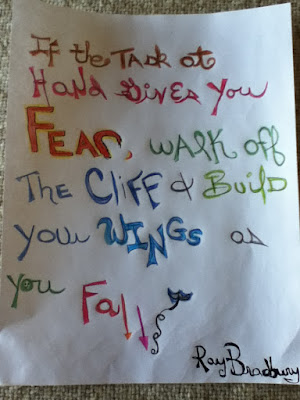 If the Task at
Hand Gives You
FEAR, walk off
The CLiFF & Build
your WINGS as
you Fall
Ray Bradbury